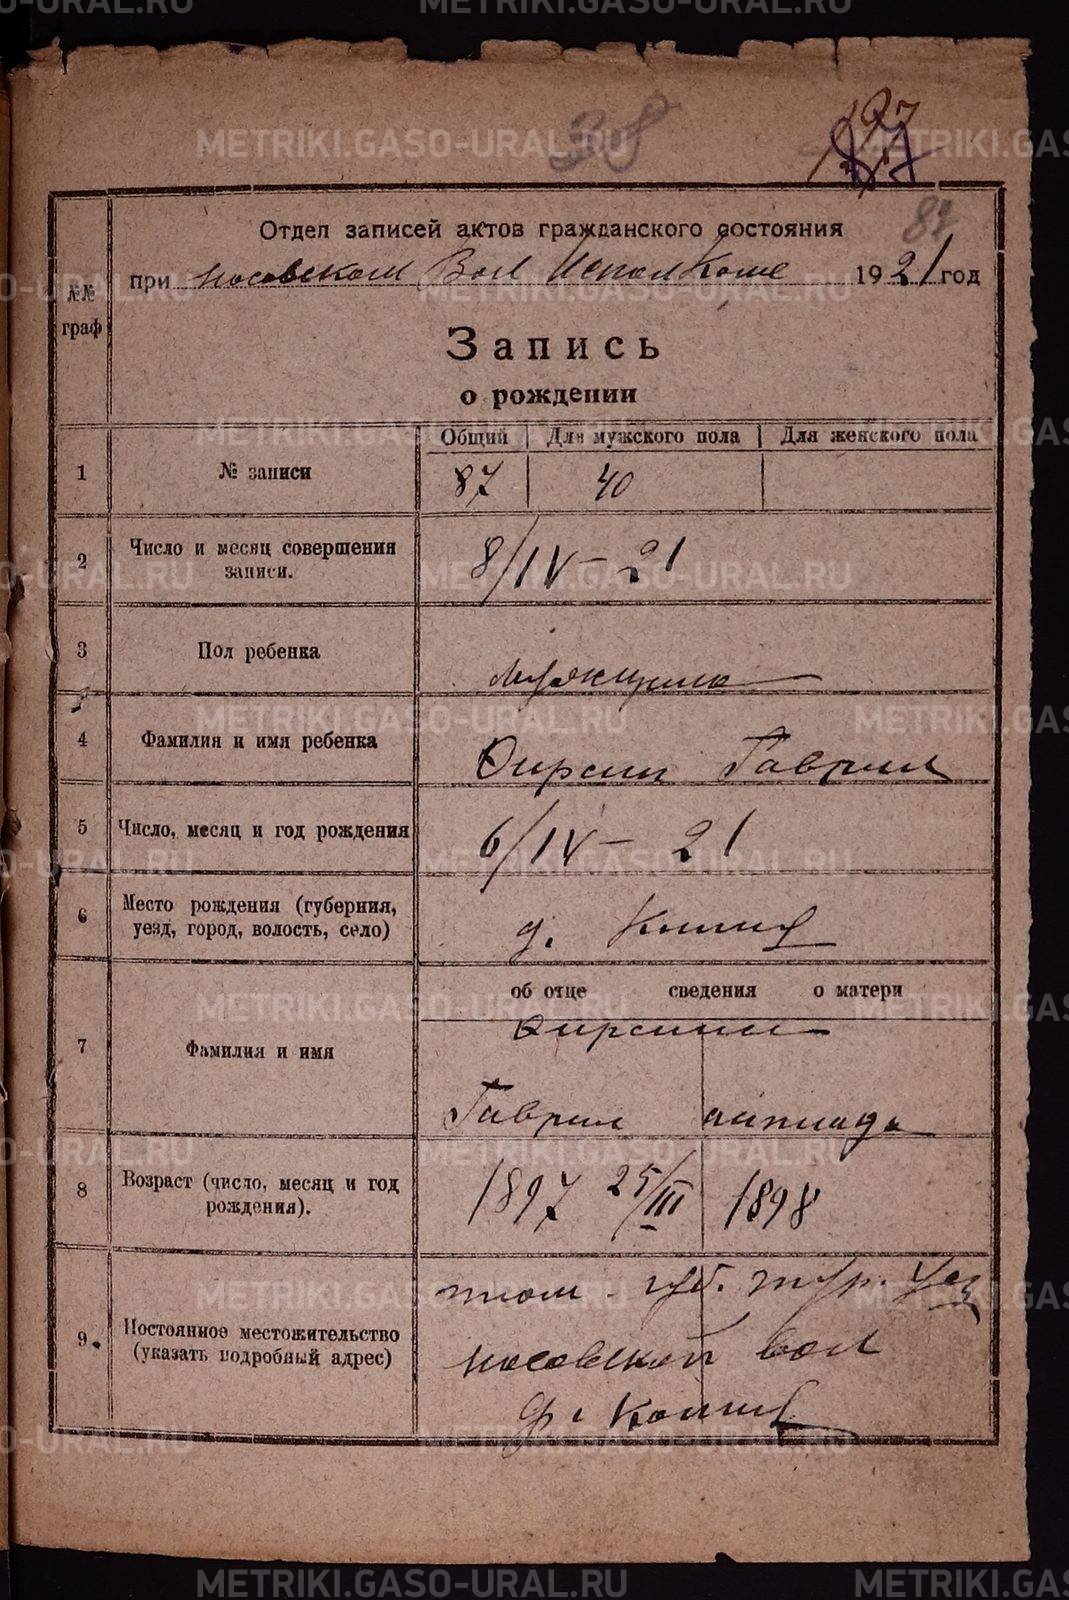 METRIKI.GASO-URAL.RU
38
197
87
82
Отдел записей актов гражданского состояния
при Носовском Вол Исполкоме 1921 год
№№ граф
Запись
о рождении
Общий Для мужского пола Для женского пола
1 № записи 87 40
2 Число и месяц совершения записи. 8/IV – 21
3 Пол ребенка мужчина
4 Фамилия и имя ребенка Фирсин Гаврил
5 Число, месяц и год рождения 6/IV – 21
6 Место рождения (губерния, уезд, город, волость, село) д.
об отце сведения о матери
7 Фамилия и имя
Гаврил
8 Возраст (число, месяц и год рождения). 1897 25/III 1898
9. Постоянное местожительство (указать подробный адрес)
губ. тур. уез
Носовской вол
METRIKI.GASO-URAL.RU